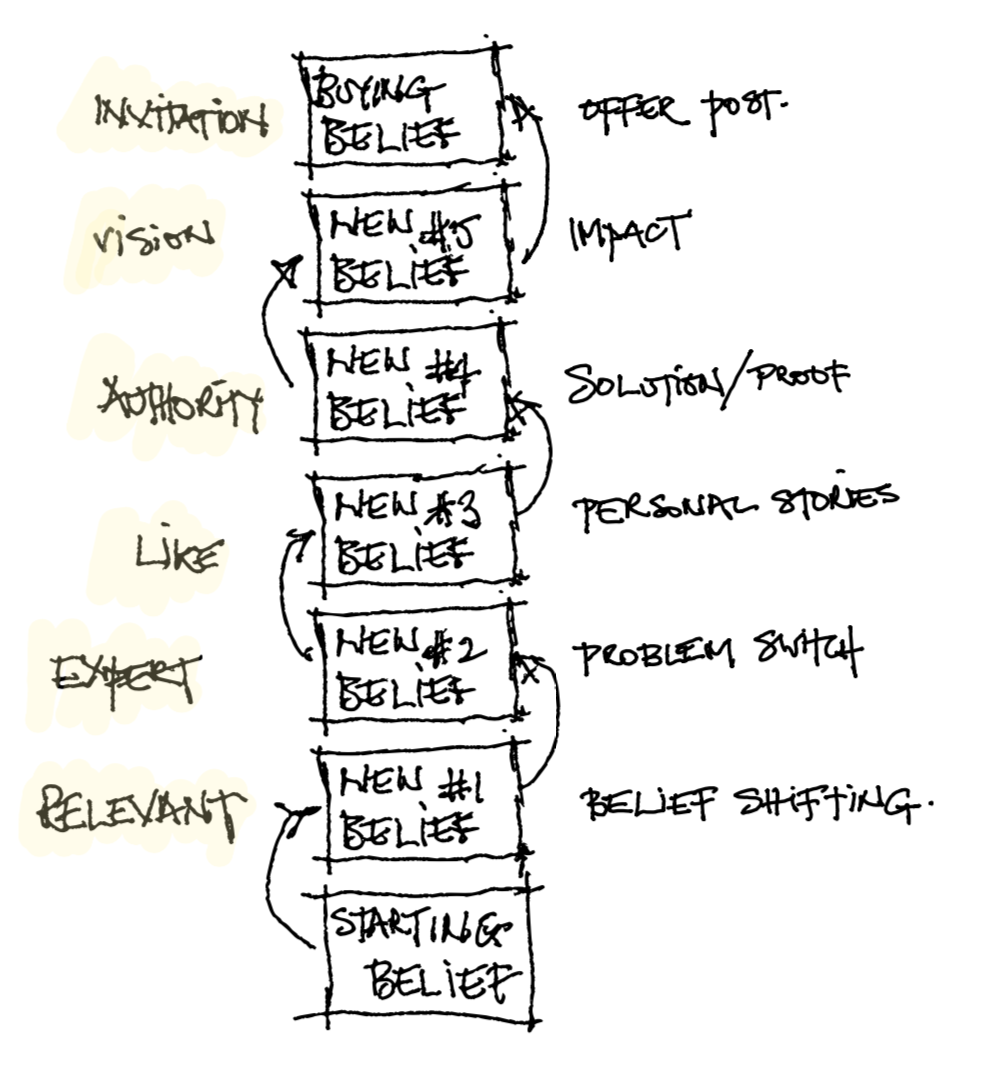 INVITATION
BUYING
BELIEF
OFFER POST.
VISION
NEW #5
BELIEF
IMPACT
AUTHORITY
NEW #4
BELIEF
SOLUTION/PROOF
LIKE
NEW #3
BELIEF
PERSONAL STORIES
EXPERT
NEW #2
BELIEF
PROBLEM SWITCH
RELEVANT
NEW #1
BELIEF
BELIEF SHIFTING.
STARTING
BELIEF